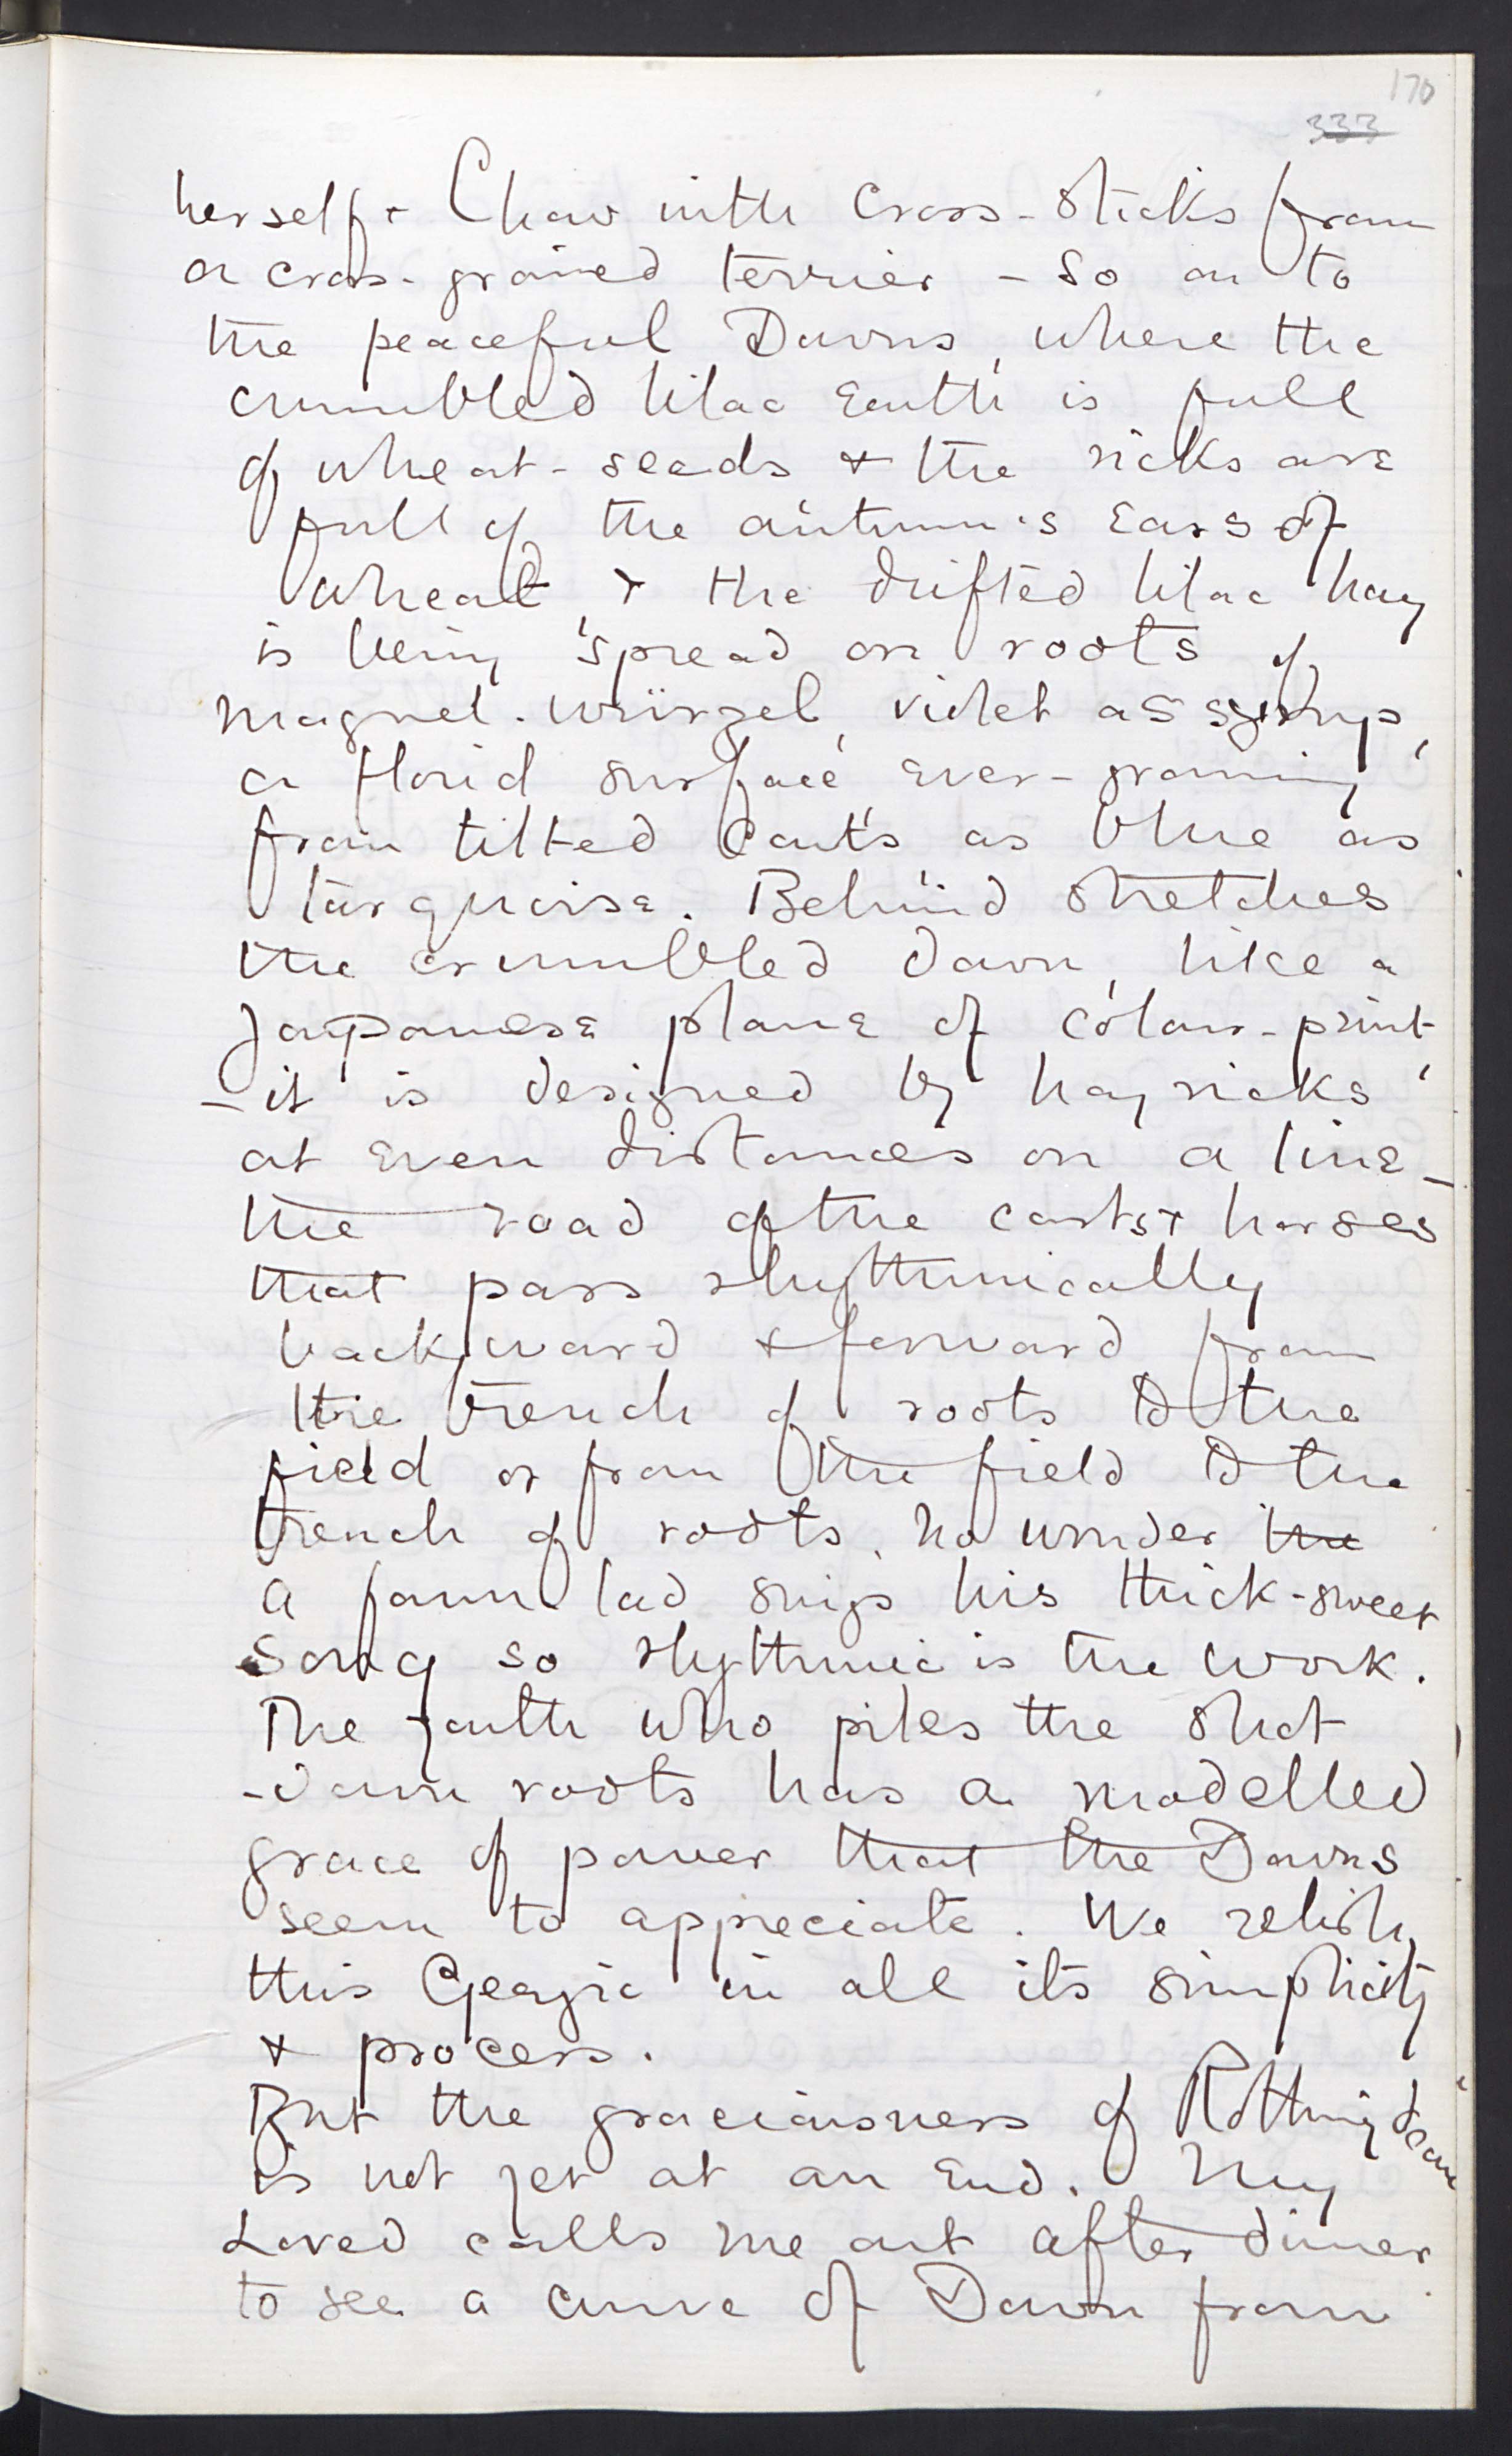 170
333
herself & Chow with cross-sticks from
a cross-grained terrier – So on to
the peaceful Downs, where the
crumbled lilac Earth is full
of wheat-seeds & the ricks are
full of the autumn's Ears of
wheat, & the drifted lilac hay
is being spread on roots of
magnel-würzel, violet as syrup,
a florid surface ever-
from tilted carts as blue as
turquoise. Behind stretches
the crumbled down, like a
Japanese plane of colour-print
– it is designed by hayricks
at even distances on a line –
the road of the carts & horses
that pass rhythmically
backward & forward from
the trench of roots to the
field or from the field to the
trench of roots. No wonder the
a farm lad sings his thick-sweet
song so rhythmic is the work.
The youth who piles the shot
-down roots has a modelled
grace of power that the Downs
seem to appreciate. We relish
this Georgic in all its simplicity
& process.
But the graciousness of Rottingdean
is not yet at an End. My
Loved calls me out after dinner
to see a curve of Down from